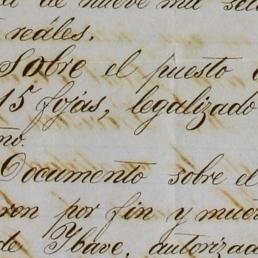 de nueve mil
reáles.
Sobre el puesto
15 fojas, legalizado
no.
Documento sobre el
ron por fin y muer
de Ibave, autorizad